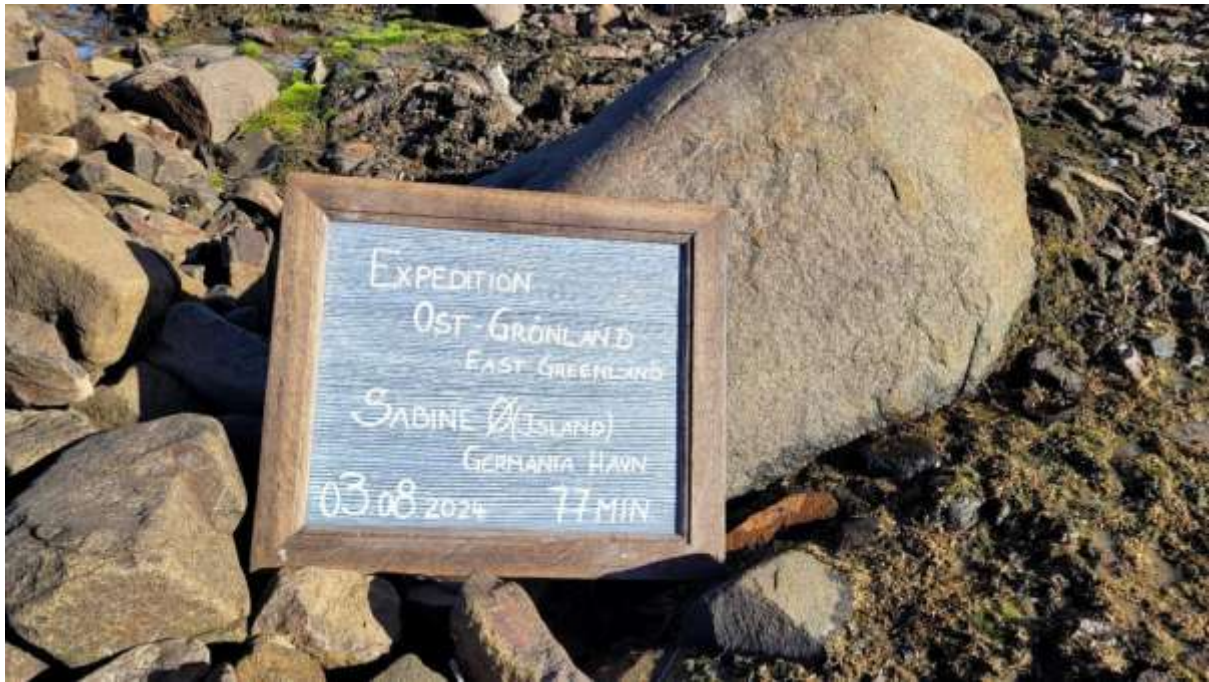 EXPEDITION
OST-GRÖNLAND
EAST GREENLAND
SABINE Ø (ISLAND)
GERMANIA HAVN
03.08.2024 77 MIN